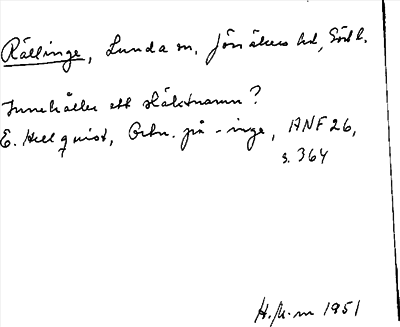 Rällinge, Lunda sn, Jönåkers hd, Södl.
Innehåller ett släktnamn?
E. Hellquist, Ortn. på -inge, ANF 26,
s. 364
H. 1951